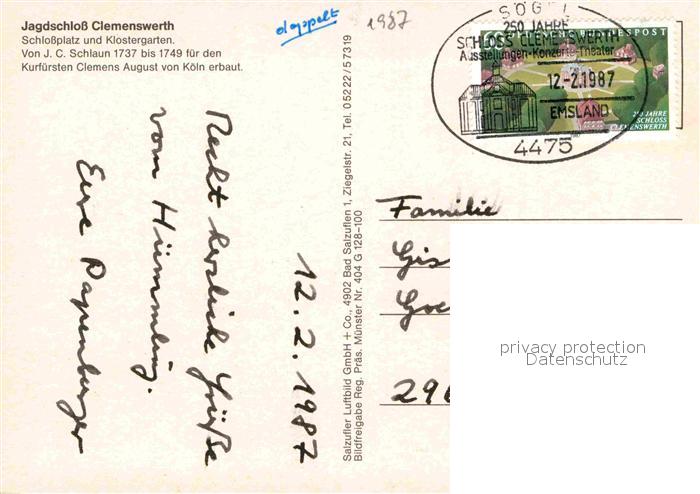 Jagdschloß Clemenswerth
Schloßplatz und Klostergarten.
Von J. C. Schlaun 1737 bis 1749 für den
Kurfürsten Clemens August von Köln erbaut.
1987
SÖGEL
250 JAHRE
SCHLOSS CLEMENSWERTH
Ausstellungen-Konzerte-Theater
12.-2.1987
EMSLAND
4475
250 JAHRE
SCHLOSS
CLEMENSWERTH
12.2.1987
Recht herzliche Grüße
vom Hümmling.
Eure Papenburger
Salzufler Luftbild GmbH + Co., 4902 Bad Salzuflen 1, Ziegelstr. 21, Tel. 05222/57319
Bildfreigabe Reg. Präs. Münster Nr. 404 G 128-100
Familie
Gis
Goe
296
privacy protection
Datenschutz